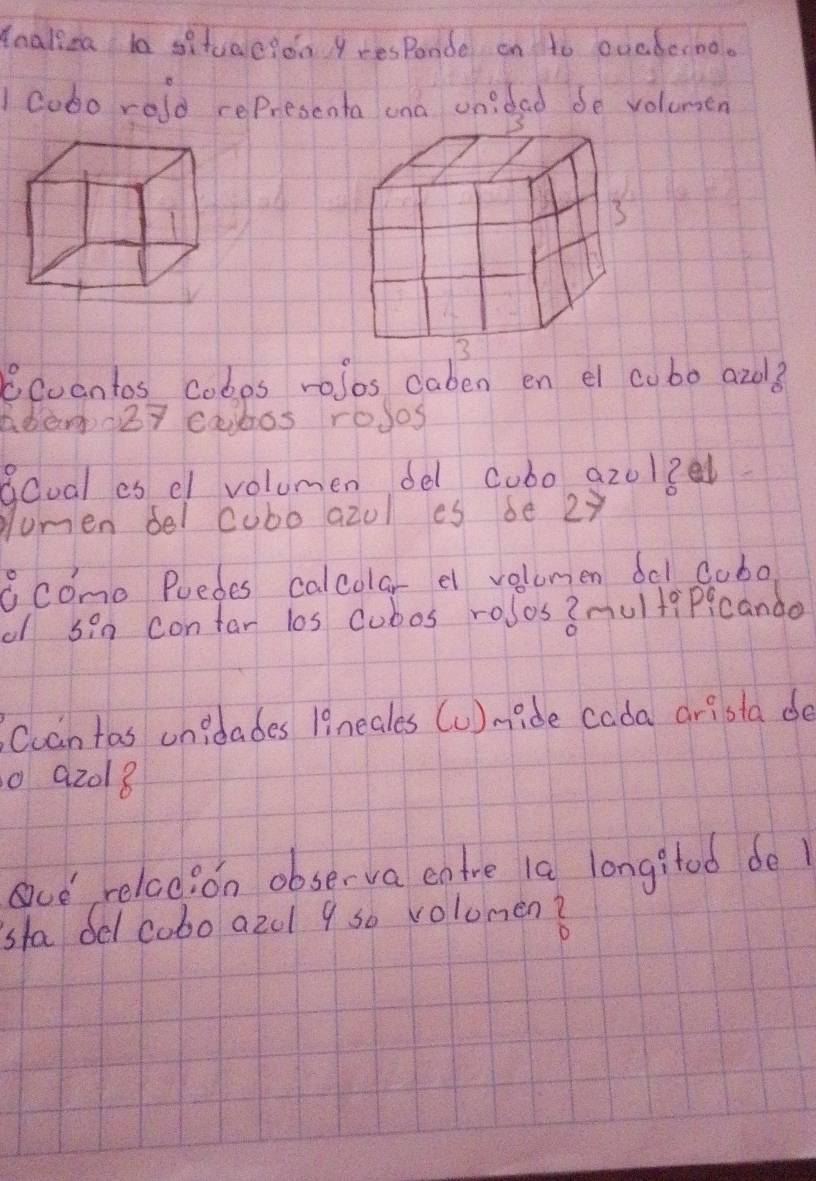 Analiza la situación y responde en tu cuaderno.
l cubo rojo representa una unidad de volumen
3
1
3
3
¿Cuantos cubos rojos caben en el cubo azul?
aben 27 cubos rojos
¿Cual es el volumen del cubo azul? el
olumen del cubo azul es de 27
¿Cómo Puedes calcular el volumen del cubo
ul sin contar los cubos rojos? multipicando
¿Cuántas unidades lineales (u) mide cada arista de
o azul?
Qué relación observa entre la longitud de l
sta del cubo azul y su volumen?